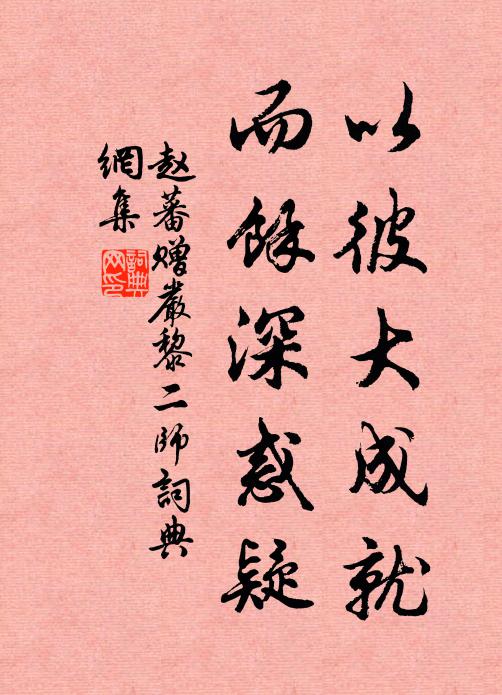 以彼大成就
而餘深惑疑
赵蕃赠嚴黎二师詞典
網集
詞典
网印